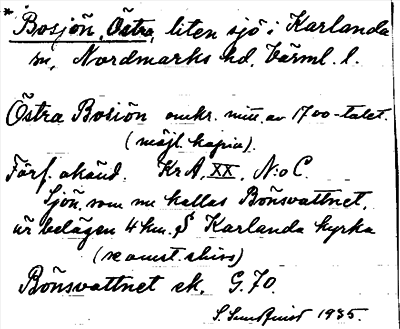 * Bosjön, Östra, liten sjö i Karlanda
sn, Nordmarks hd, Värml. l.
Östra Bosiön omkr. mitt. av 1700-talet.
(möjl. kopia).
Förf. okänd. KrA, XX, N:o C.
Sjön, som nu kallas Bönsvattnet,
är belägen 4 km. S Karlanda kyrka
(se annat skivs)
Bönsvattnet ek. G.70.
S. Lundquist 1935.